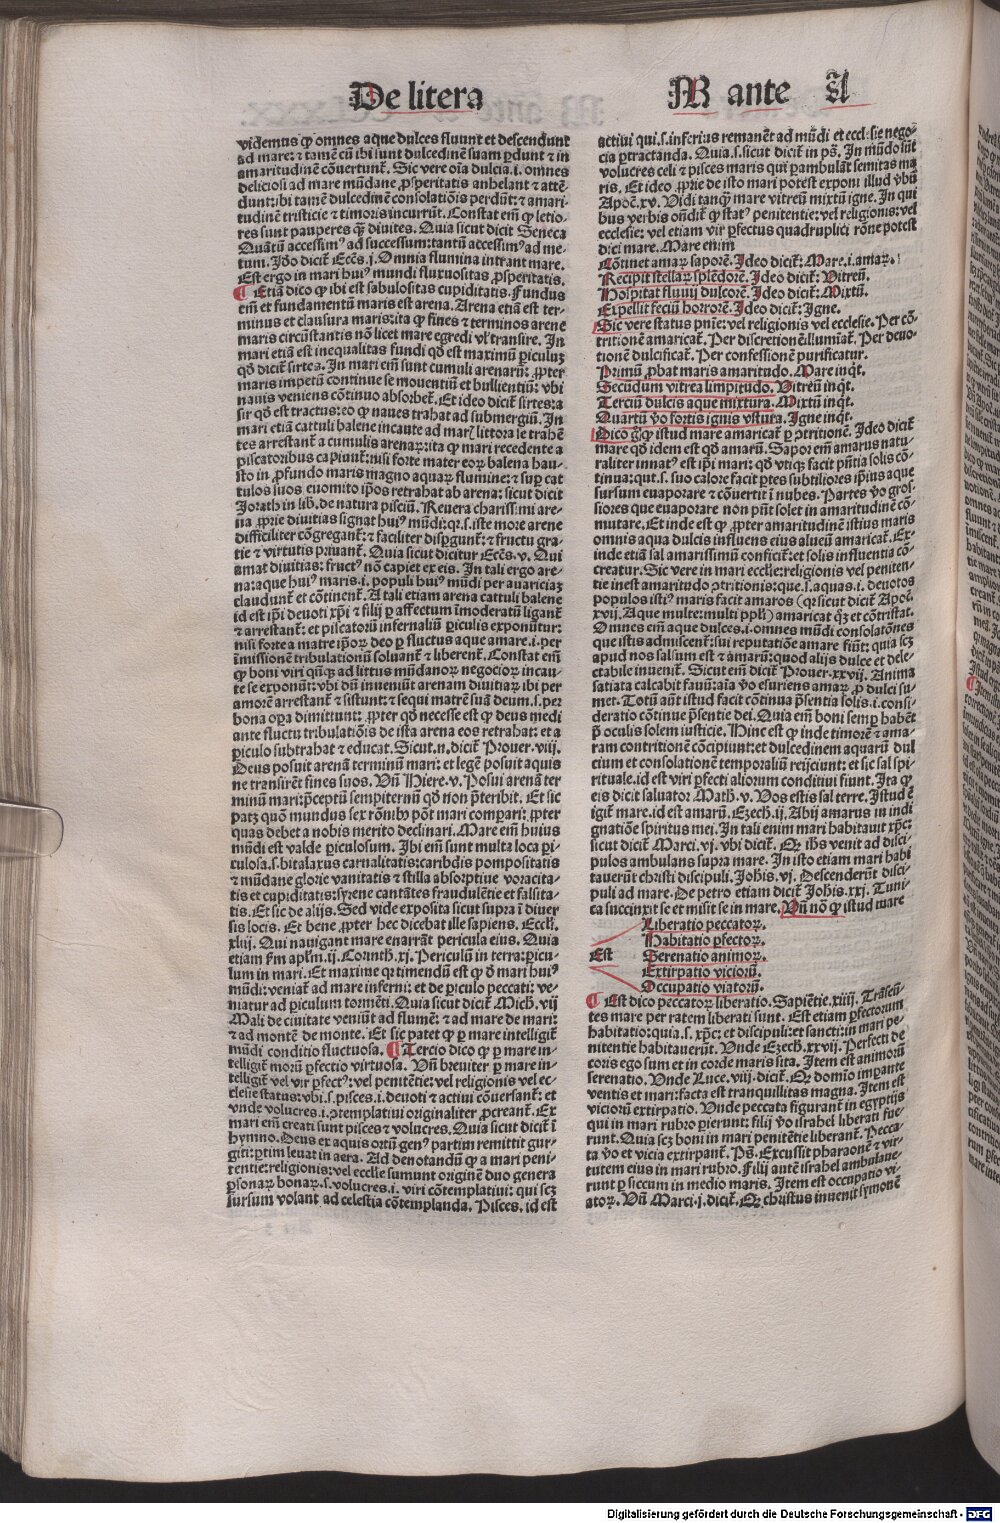 De litera
M ante A
videmus ꝙ omnes aque dulces fluunt et descendunt
ad mare: ⁊ tamē cū ibi sunt dulcedinē suam ꝑdunt ⁊ in
amaritudinē cōuertunt̄. Sic vere oīa dulcia .i. omnes
deliciosi ad mare mūdane ꝓsperitatis anhelant ⁊ attē
dunt: ibi tamē dulcedinē consolatiōis perdūt: ⁊ amari-
tudinē tristicie ⁊ timoris incurrūt. Constat em̄ ꝙ letio-
res sunt pauperes ꝙ̄ diuites. Quia sicut dicit Seneca
Quātū accessimꝰ ad successum: tantū accessimꝰ ad me-
tum. Iđo dicit̄ Eccs̄. j. Omnia flumina intrant mare.
Est ergo in mari huiꝰ mundi fluxuositas ꝓsperitatis.
¶ Etiā dico ꝙ ibi est sabulositas cupiditatis. Fundus
em̄ et fundamentū maris est arena. Arena etiā est ter-
minus et clausura maris: ita ꝙ fines ⁊ terminos arene
maris circūstantis nō licet mare egredi vl̄ transire. In
mari etiā est inequalitas fundi qđ est maximū ꝑiculuꝫ
qđ dicit̄ sirtes. In mari em̄ sunt cumuli arenaꝝ: ꝓpter
maris impetū continue se mouentiū et bullientiū: vbi
nauis veniens cōtinuo absorbet̄. Et ideo dicit̄ sirtes: a
sir qđ est tractus: eo ꝙ naues trahat ad submergiū. In
mari etiā cattuli balene incaute ad marꝭ littora se trahē
tes arrestant̄ a cumulis arenaꝝ: ita ꝙ mari recedente a
piscatoribus capiunt̄: nisi forte mater eoꝝ balena hau-
sto in ꝓfundo maris magno aquaꝝ flumine: ⁊ suꝑ cat
tulos suos euomito ip̄os retrahat ab arena: sicut dicit
Iorath in lib. de natura pisciū. Reuera charissimi are-
na ꝓprie diuitias signat huiꝰ mūdi: qꝛ .s. iste more arene
difficiliter cōgregant̄: ⁊ faciliter disꝑgunt̄: ⁊ fructu gra-
tie ⁊ virtutis priuant̄. Quia sicut dicitur Eccs̄. v. Qui
amat diuitias: fructꝰ nō capiet ex eis. In tali ergo are-
na: aque huiꝰ maris .i. populi huiꝰ mūdi per auariciaꝫ
claudunt̄ et cōtinent̄. A tali etiam arena cattuli balene
id est ip̄i deuoti xp̄i ⁊ filij ꝑ affectum īmoderatū ligant̄
⁊ arrestant̄: et piscatorū infernaliū ꝑiculis exponūtur:
nisi forte a matre ip̄oꝝ deo ꝑ fluctus aque amare .i. per
īmissionē tribulationū soluant̄ ⁊ liberent̄. Constat em̄
ꝙ boni viri qn̄qꝫ ad littus mūdanoꝝ negocioꝝ incau-
te se exponūt: vbi dū inueniūt arenam diuitiaꝝ ibi per
amorē arrestant̄ ⁊ sistunt̄: ⁊ sequi matrē suā deum .s. per
bona oꝑa dimittunt: ꝓpter qđ necesse est ꝙ deus medi
ante fluctu tribulatiōis de ista arena eos retrahat: et a
ꝑiculo subtrahat ⁊ educat. Sicut .n. dicit̄ Prouer. viij.
Deus posuit arenā terminū mari: et legē posuit aquis
ne transirēt fines suos. Vn̄ Hiere. v. Posui arenā ter
minū mari: p̄ceptū sempiternū qđ non p̄teribit. Et sic
patꝫ quō mundus sex rōnibꝰ pōt mari compari: ꝓpter
quas debet a nobis merito declinari. Mare em̄ huius
mūdi est valde ꝑiculosum. Ibi em̄ sunt multa loca ꝑi-
culosa .s. bitalaxus carnalitatis: caribdis pompositatis
⁊ mūdane glorie vanitatis ⁊ stilla absorptiue voracita-
tis et cupiditatis: syrene cantātes fraudulētie et falsita-
tis. Et sic de alijs. Sed vide exposita sicut supra ī diuer
sis locis. Et bene ꝓpter hec dicebat ille sapiens. Eccl̄i.
xliij. Qui nauigant mare enarrāt pericula eius. Quia
etiam ẜm apl̄m .ij. Corinth. xj. Periculū in terra: ꝑicu-
lum in mari. Et maxime qꝛ timendū est ꝙ đ mari huiꝰ
mūdi: veniat̄ ad mare inferni: et de ꝑiculo peccati: ve-
niatur ad ꝑiculum tormēti. Quia sicut dicit̄ Mich. vij
Mali de ciuitate veniūt ad flumē: ⁊ ad mare de mari:
⁊ ad montē de monte. Et sic patet ꝙ ꝑ mare intelligit̄
mūdi conditio fluctuosa. ¶ Tercio dico ꝙ ꝑ mare in-
telligit̄ morū ꝑfectio virtuosa. Vn̄ breuiter ꝑ mare in-
telligit̄ vel vir ꝑfectꝰ: vel penitētie: vel religionis vel ec-
clesie status: vbi .s. pisces .i. deuoti ⁊ actiui cōuersant̄: et
vnde volucres .i. ꝯtemplatiui originaliter ꝓcreant̄. Ex
mari em̄ creati sunt pisces ⁊ volucres. Quia sicut dicit̄ ī
hymno. Deus ex aquis ortū genꝰ partim remittit gur-
giti: ꝑtim leuat in aera. Ad denotandū ꝙ a mari peni
tentie: religionis: vel eccl̄ie sumunt originē duo genera
ꝑsonaꝝ bonaꝝ .s. volucres .i. viri cōtemplatiui: qui scꝫ
sursum volant ad celestia cōtemplanda. Pisces .id est
actiui qui .s. inferius remanēt ad mūdi et eccl̄esie nego-
cia ꝑtractanda. Quia .s. sicut dicit̄ in ps̄. In mūdo sūt
volucres celi ⁊ pisces maris qui ꝑambulāt semitas ma
ris. Et ideo ꝓprie de isto mari potest exponi illud v̄bū
Apoc̄. xv. Vidi tanqꝫ mare vitreū mixtū igne. In qui
bus verbis on̄dit̄ ꝙ statꝰ penitentie: vel religionis: vel
ecclesie: vel etiam vir ꝑfectus quadruplici rōne potest
dici mare. Mare enim
Cōtinet amaꝝ saporē. Ideo dicit̄: Mare .i. amaꝝ.
Recipit stellaꝝ splēdorē. Ideo dicit̄: Vitreū.
Hospitat fluuij dulcorē. Ideo dicit̄: Mixtū.
Expellit feciū horrorē. Ideo dicit̄: Igne.
Sic vere status pn̄ie: vel religionis vel ecclesie. Per cō-
tritionē amaricat̄. Per discretionē illumīat̄. Per deuo-
tionē dulcificat̄. Per confessionē purificatur.
Primū ꝓbat maris amaritudo. Mare inqͭ.
Secūdum vitrea limpitudo. Vitreū inqͭ.
Terciū dulcis aque mixtura. Mixtū inqͭ.
Quartū v̄o fortis ignis vstura. Igne inqͭ.
Dico g̊ ꝙ istud mare amaricat̄ ꝑ ꝯtritionē. Ideo dicit̄
mare qđ idem est qđ amarū. Sapor em̄ amarus natu-
raliter innatꝰ est ip̄i mari: qđ vtiqꝫ facit pn̄tia solis cō-
tinua: qui .s. suo calore facit ꝑtes subtiliores ip̄ius aque
sursum euaporare ⁊ cōuertit ī nubes. Partes v̄o gros-
siores que euaporare non pn̄t solet in amaritudinē cō-
mutare. Et inde est ꝙ ꝓpter amaritudinē istius maris
omnis aqua dulcis influens eius alueū amaricat̄. Ex-
inde etiā sal amarissimū conficit̄: et solis influentia cō-
creatur. Sic vere in mari eccl̄ie: religionis vel peniten-
tie inest amaritudo ꝯtritionis: que .s. aquas .i. deuotos
populos istiꝰ maris facit amaros (qꝛ sicut dicit̄ Apoc̄.
xvij. Aque multe: multi ppl̄i) amaricat qꝫ et cōtristat.
Omnes em̄ aque dulces .i. omnes mūdi consolatōnes
que istis admiscent̄: sui reputatiōe amare fiūt: quia scꝫ
apud nos salsum est ⁊ amarū: quod alijs dulce et dele-
ctabile inuenit̄. Sicut em̄ dicit̄ Prouer. xxvij. Anima
satiata calcabit fauū: aīa v̄o esuriens amaꝝ ꝓ dulci su-
met. Totū aūt istud facit cōtinua p̄sentia solis .i. consi-
deratio cōtinue p̄sentie dei. Quia em̄ boni semꝑ habēt
p̄ oculis solem iusticie. Hinc est ꝙ inde timorē ⁊ ama-
ram contritionē cōcipiunt: et dulcedinem aquarū dul
cium et consolationē temporaliū reijciunt: et sic sal spi-
rituale .id est viri ꝑfecti aliorum conditiui fiunt. Ita ꝙ
eis dicit saluator Math. v. Vos estis sal terre. Istud ē
igit̄ mare .id est amarū. Ezech. ij. Abij amarus in indi
gnatiōe spiritus mei. In tali enim mari habitauit xp̄c:
sicut dicit̄ Marci. vj. vbi dicit̄. Qꝛ ih̄s venit ad disci-
pulos ambulans supra mare. In isto etiam mari habi
tauerūt christi discipuli. Joh̄is. vj. Descenderūt disci-
puli ad mare. De petro etiam dicit̄ Joh̄is. xxj. Tuni-
ca succinxit se et misit se in mare. Vn̄ nō ꝙ istud mare
Est
Liberatio peccatoꝝ.
Habitatio ꝑfectoꝝ.
Serenatio animoꝝ.
Extirpatio vicioꝝ.
Occupatio viatoꝝ.
¶ Est dico peccatoꝝ liberatio. Sapiētie. xiiij. Trāseū-
tes mare per ratem liberati sunt. Est etiam ꝑfectorum
habitatio: quia .s. xp̄c: et discipuli: et sancti: in mari pe-
nitentie habitauerūt. Vnde Ezech. xxvij. Perfecti de
coris ego sum et in corde maris sita. Item est animorū
serenatio. Vnde Luce. viij. dicit̄. Qꝛ domīo imꝑante
ventis et mari: facta est tranquillitas magna. Item est
viciorū extirpatio. Vnde peccata figurant̄ in egyptijs
qui in mari rubro ꝑierunt: filij v̄o israhel liberati fue-
runt. Quia scꝫ boni in mari penitētie liberant̄. Pecca-
ta v̄o et vicia extirpant̄. Ps̄. Excussit pharaonē ⁊ vir-
tutem eius in mari rubro. Filij autē israhel ambulaue-
runt ꝑ siccum in medio maris. Item est occupatio vi-
atoꝝ. Vn̄ Marci. j. dicit̄. Qꝛ christus inuenit symonē
Digitalisierung gefördert durch die Deutsche Forschungsgemeinschaft - DFG